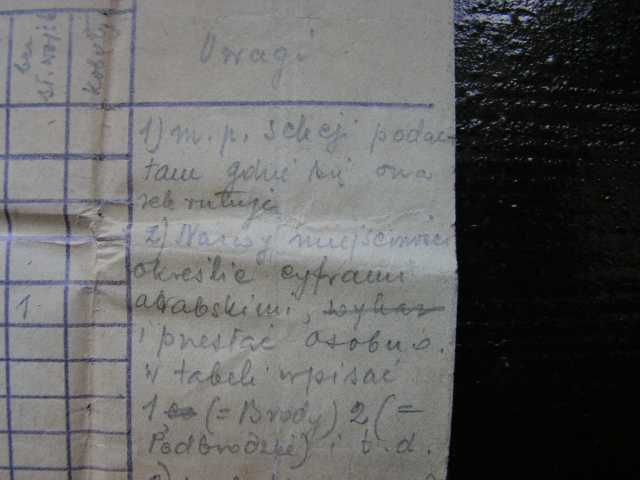 bez st. wojsk.
Kobiety
Uwagi
1) m. p. sekcji podać
tam gdzie się ona
rekrutuje
2) Nazwy miejscowości
określić cyframi
arabskimi, wykaz
i przesłać osobno.
W tabeli wpisać
1
1, (= Brody) 2 (=
Podbrodzie) i t. d.